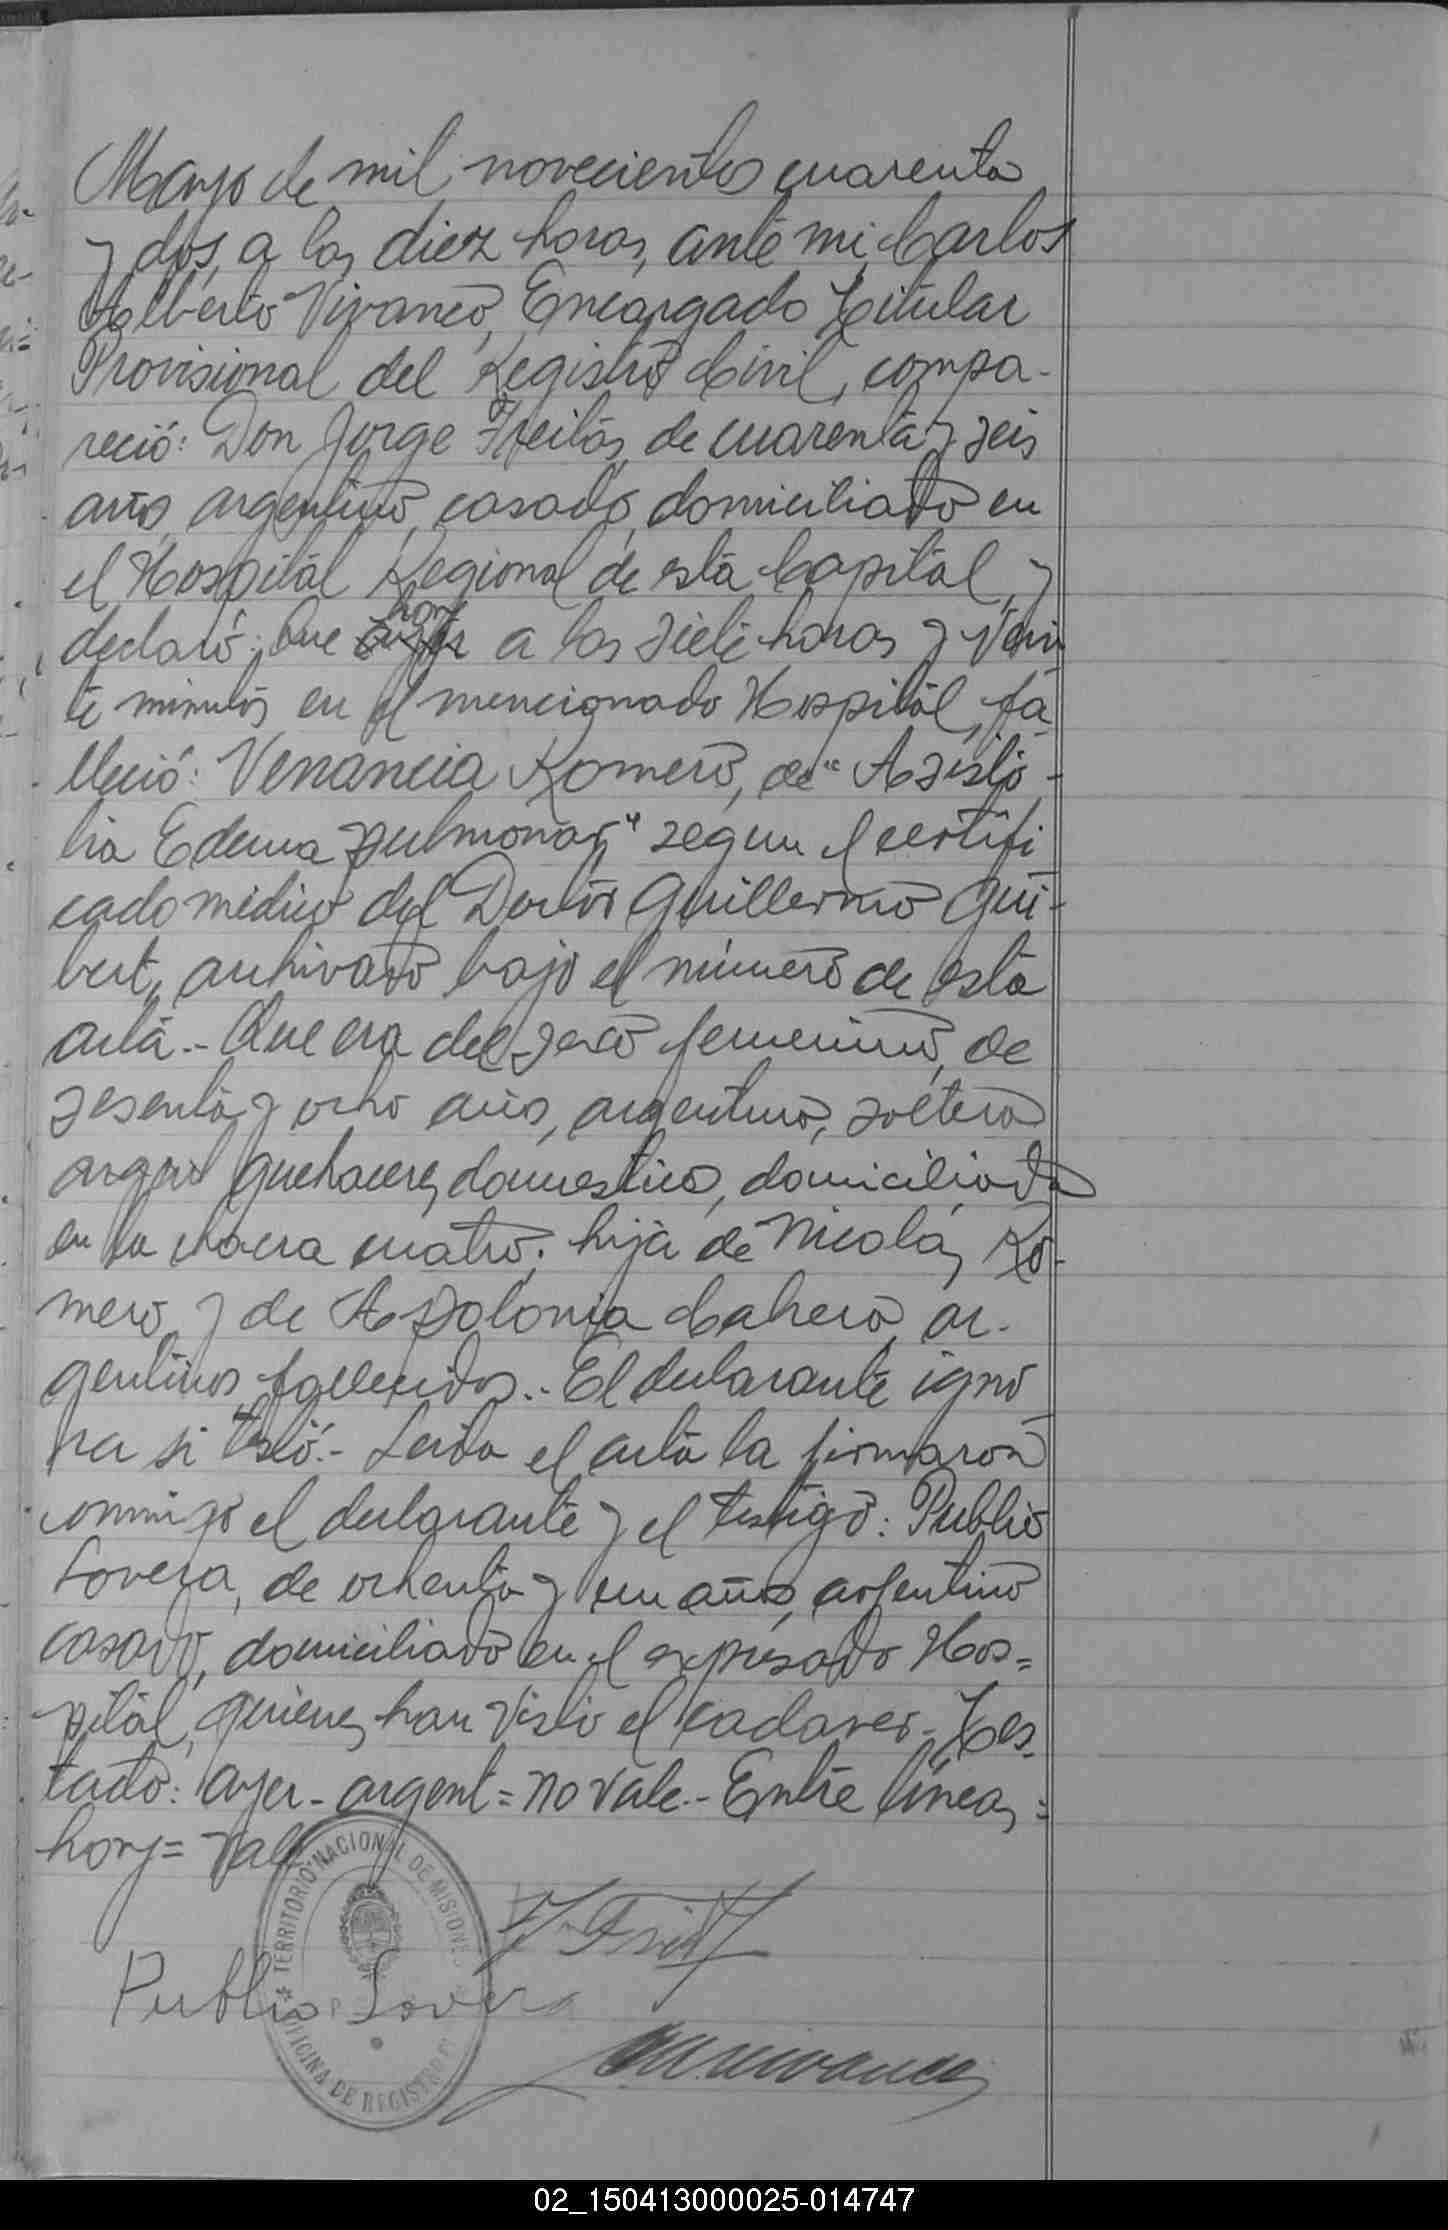 Mayo de mil novecientos cuarenta
y dos, a las diez horas, ante mi, Carlos
Alberto Vivanco, Encargado Titular
Provisional del Registro Civil, compa-
reció: Don Jorge Freitas, de cuarenta y seis
años, argentino, casado, domiciliado en
el Hospital Regional de esta Capital, y
declaró: Que hoy a las siete horas y vein
te minutos en el mencionado Hospital, fa-
lleció: Venancia Romero, de "Asisto-
lia Edema pulmonar" segun el certifi
cado médico del Doctor Guillermo Gui-
bert, archivado bajo el número de esta
acta.- Que era del sexo femenino, de
sesenta y ocho años, argentina, soltera
argent quehaceres domesticos, domiciliada
en la chacra cuatro; hija de Nicolás Ro-
mero y de Apolonia Cahero, ar-
gentinos fallecidos.- El declarante igno
ra si testó.- Leida el acta la firmaron
conmigo el declarante y el testigo: Publio
Lovera, de ochenta y un años, argentino
casado, domiciliado en el expresado Hos=
pital, quienes han visto el cadaver- Tes-
tado: ayer- argent= no vale.- Entre lineas=
hoy= vale
TERRITORIO NACIONAL DE MISIONES
J Freitas
Publio Lovera
OFICINA DE REGISTRO
02_150413000025-014747